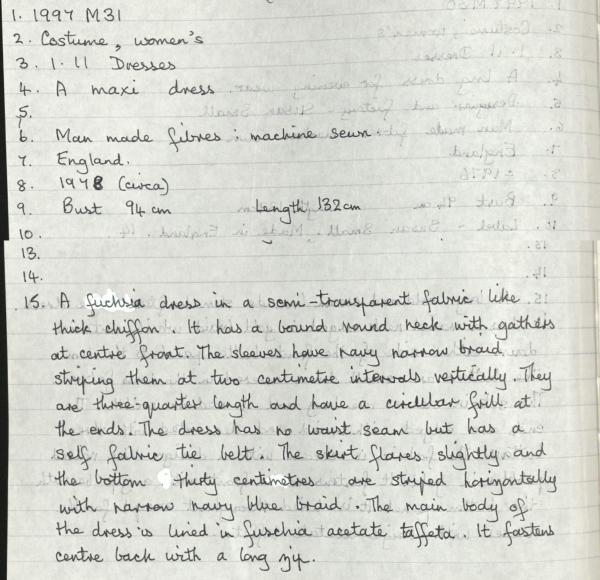 1. 1997 M31
2. Costume, women's
3. 1.11 Dresses
4. A maxi dress
5.
6. Man made fibres : machine sewn.
7. England.
8. 1978 (circa)
9. Bust 94 cm Length 132cm
10.
13.
14.
15. A fuchsia dress in a semi-transparent fabric like
thick chiffon. It has a bound round neck with gathers
at centre front. The sleeves have navy narrow braid
striping them at two centimetre intervals vertically. They
are three-quarter length and have a circular frill at
the ends. The dress has no waist seam but has a
self fabric tie belt. The skirt flares slightly and
the bottom thirty centimetres are striped horizontally
with narrow navy blue braid. The main body of
the dress is lined in fuschia acetate taffeta. It fastens
centre back with a long zip.